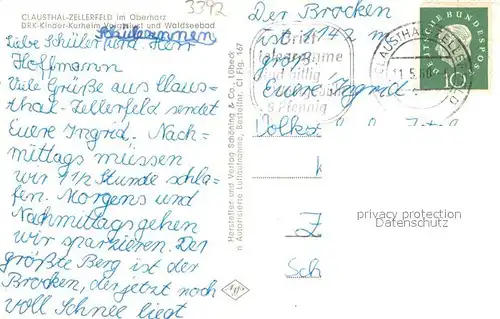 3392
CLAUSTHAL-ZELLERFELD im Oberharz
DRK-Kinder-Kurheim Voigtslust und Waldseebad
Schülerinnen
Liebe Schüler und Herr
Hoffmann
Viele Grüße aus Claus=
thal-Zellerfeld sendet
Euere Ingrid. Nach=
mittags müssen
wir 1 1/2 Stunde schla=
fen. Morgens und
Nachmittags gehen
wir sparzieren. Der
größte Berg ist der
Brocken, der jetzt noch
voll Schnee liegt
Der Brocken
ist 1142 m
groß.
Euere Ingrid
Hersteller und Verlag Schöning & Co., Lübeck
n Autorisierte Luftaufnahme, Bestellnr. Cl Flg. 167
billig
5 Pfennig
CLAUSTHAL-ZELLERFELD
11.5.60
DEUTSCHE BUNDESPOST
10
Volks
Z
Sch
privacy protection
watermark
Agfa